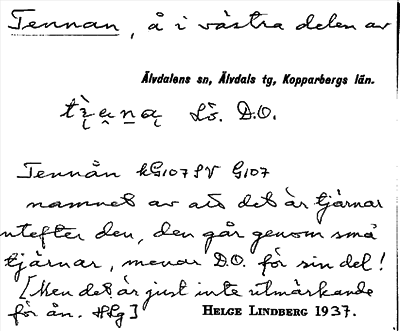 Tennan, å i västra delen av
Älvdalens sn, Älvdals tg, Kopparbergs län.
Ls. D.O.
Tennån kG107 SV G107
namnet av att det är tjärnar
utefter den, den går genom små
tjärnar, menar D.O. för sin del!
[Men det är just inte utmärkande
för ån. Hlg] HELGE LINDBERG 1937.